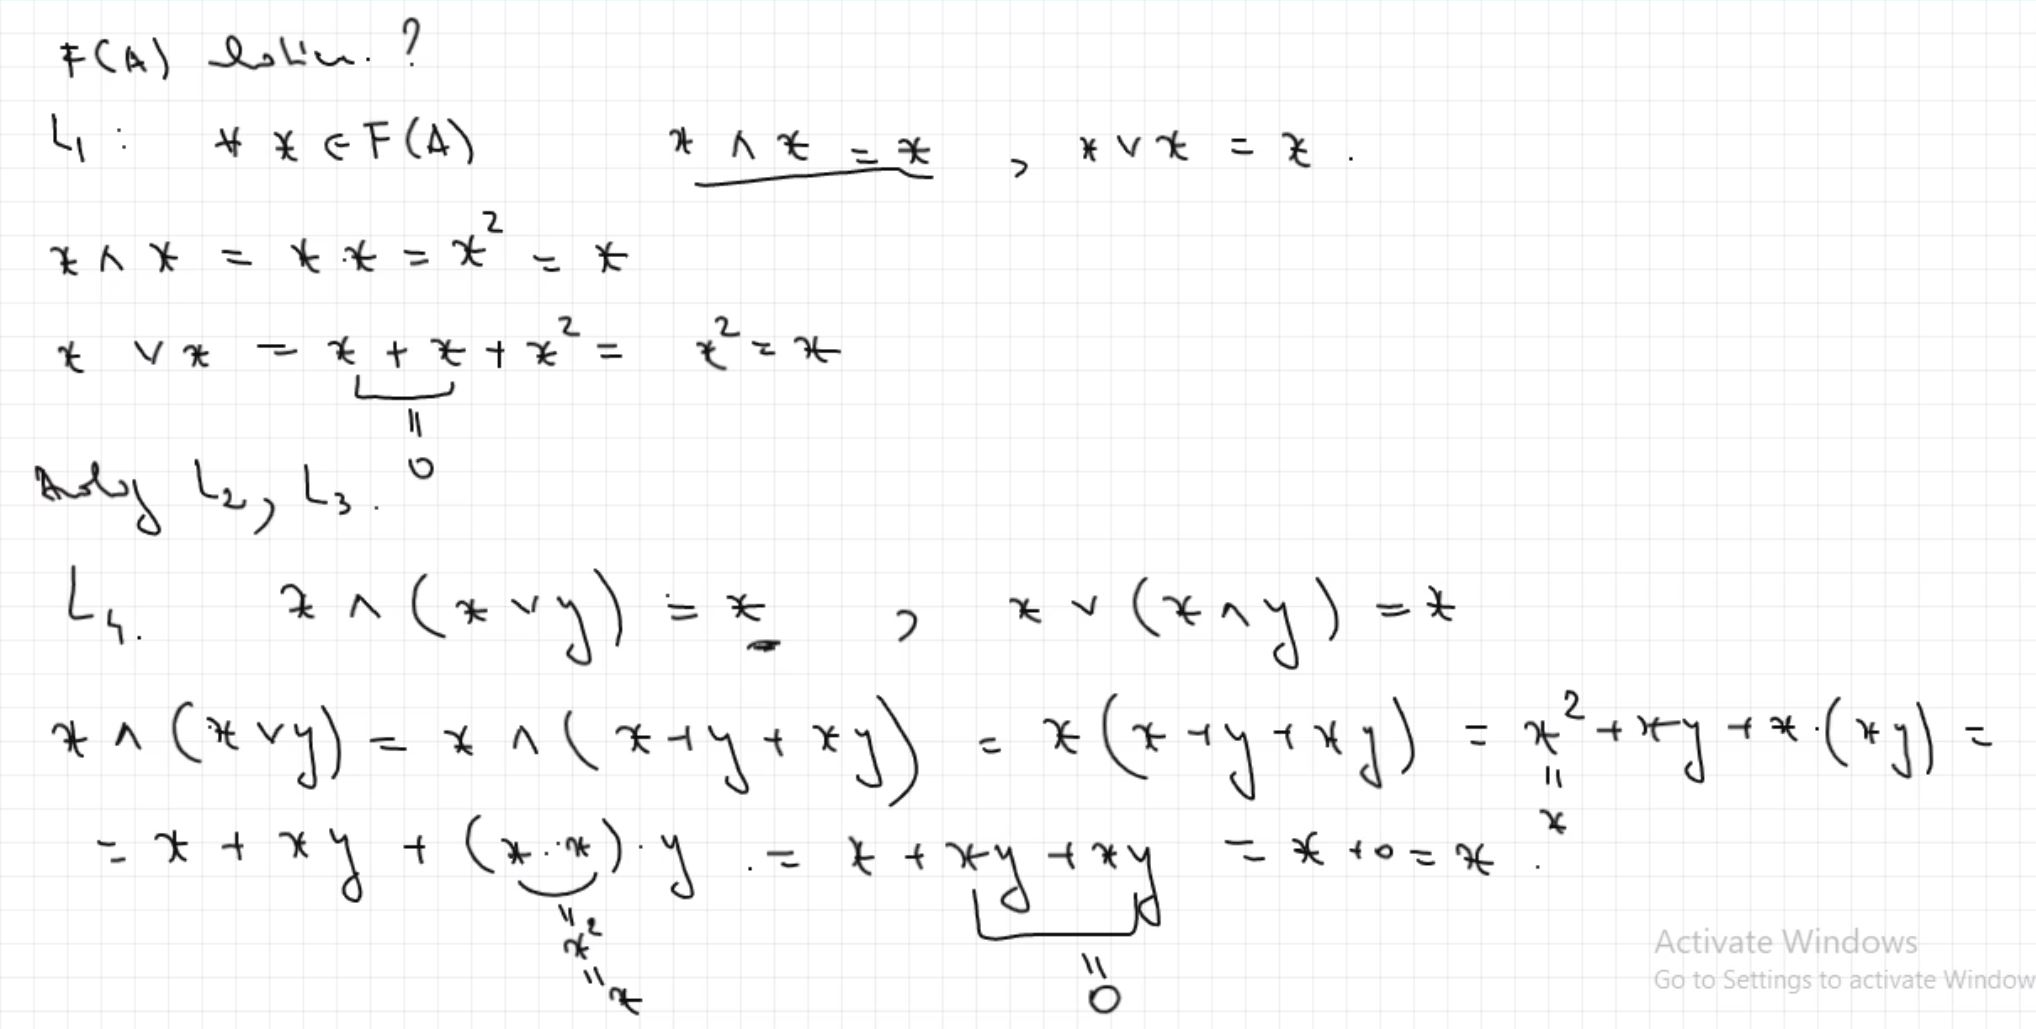 F(A) latice. ?
L₁ : ∀ x ∈ F(A) x ∧ x = x , x ∨ x = x .
x ∧ x = x · x = x² = x
x ∨ x = x + x + x² = x² = x
= 0
L₂, L₃.
L₄. x ∧ (x ∨ y) = x , x ∨ (x ∧ y) = x
x ∧ (x ∨ y) = x ∧ (x + y + xy) = x (x + y + xy) = x² + xy + x · (xy) =
= x
= x + xy + (x · x) · y . = x + xy + xy = x + 0 = x .
= x² = x
= 0
Activate Windows
Go to Settings to activate Window